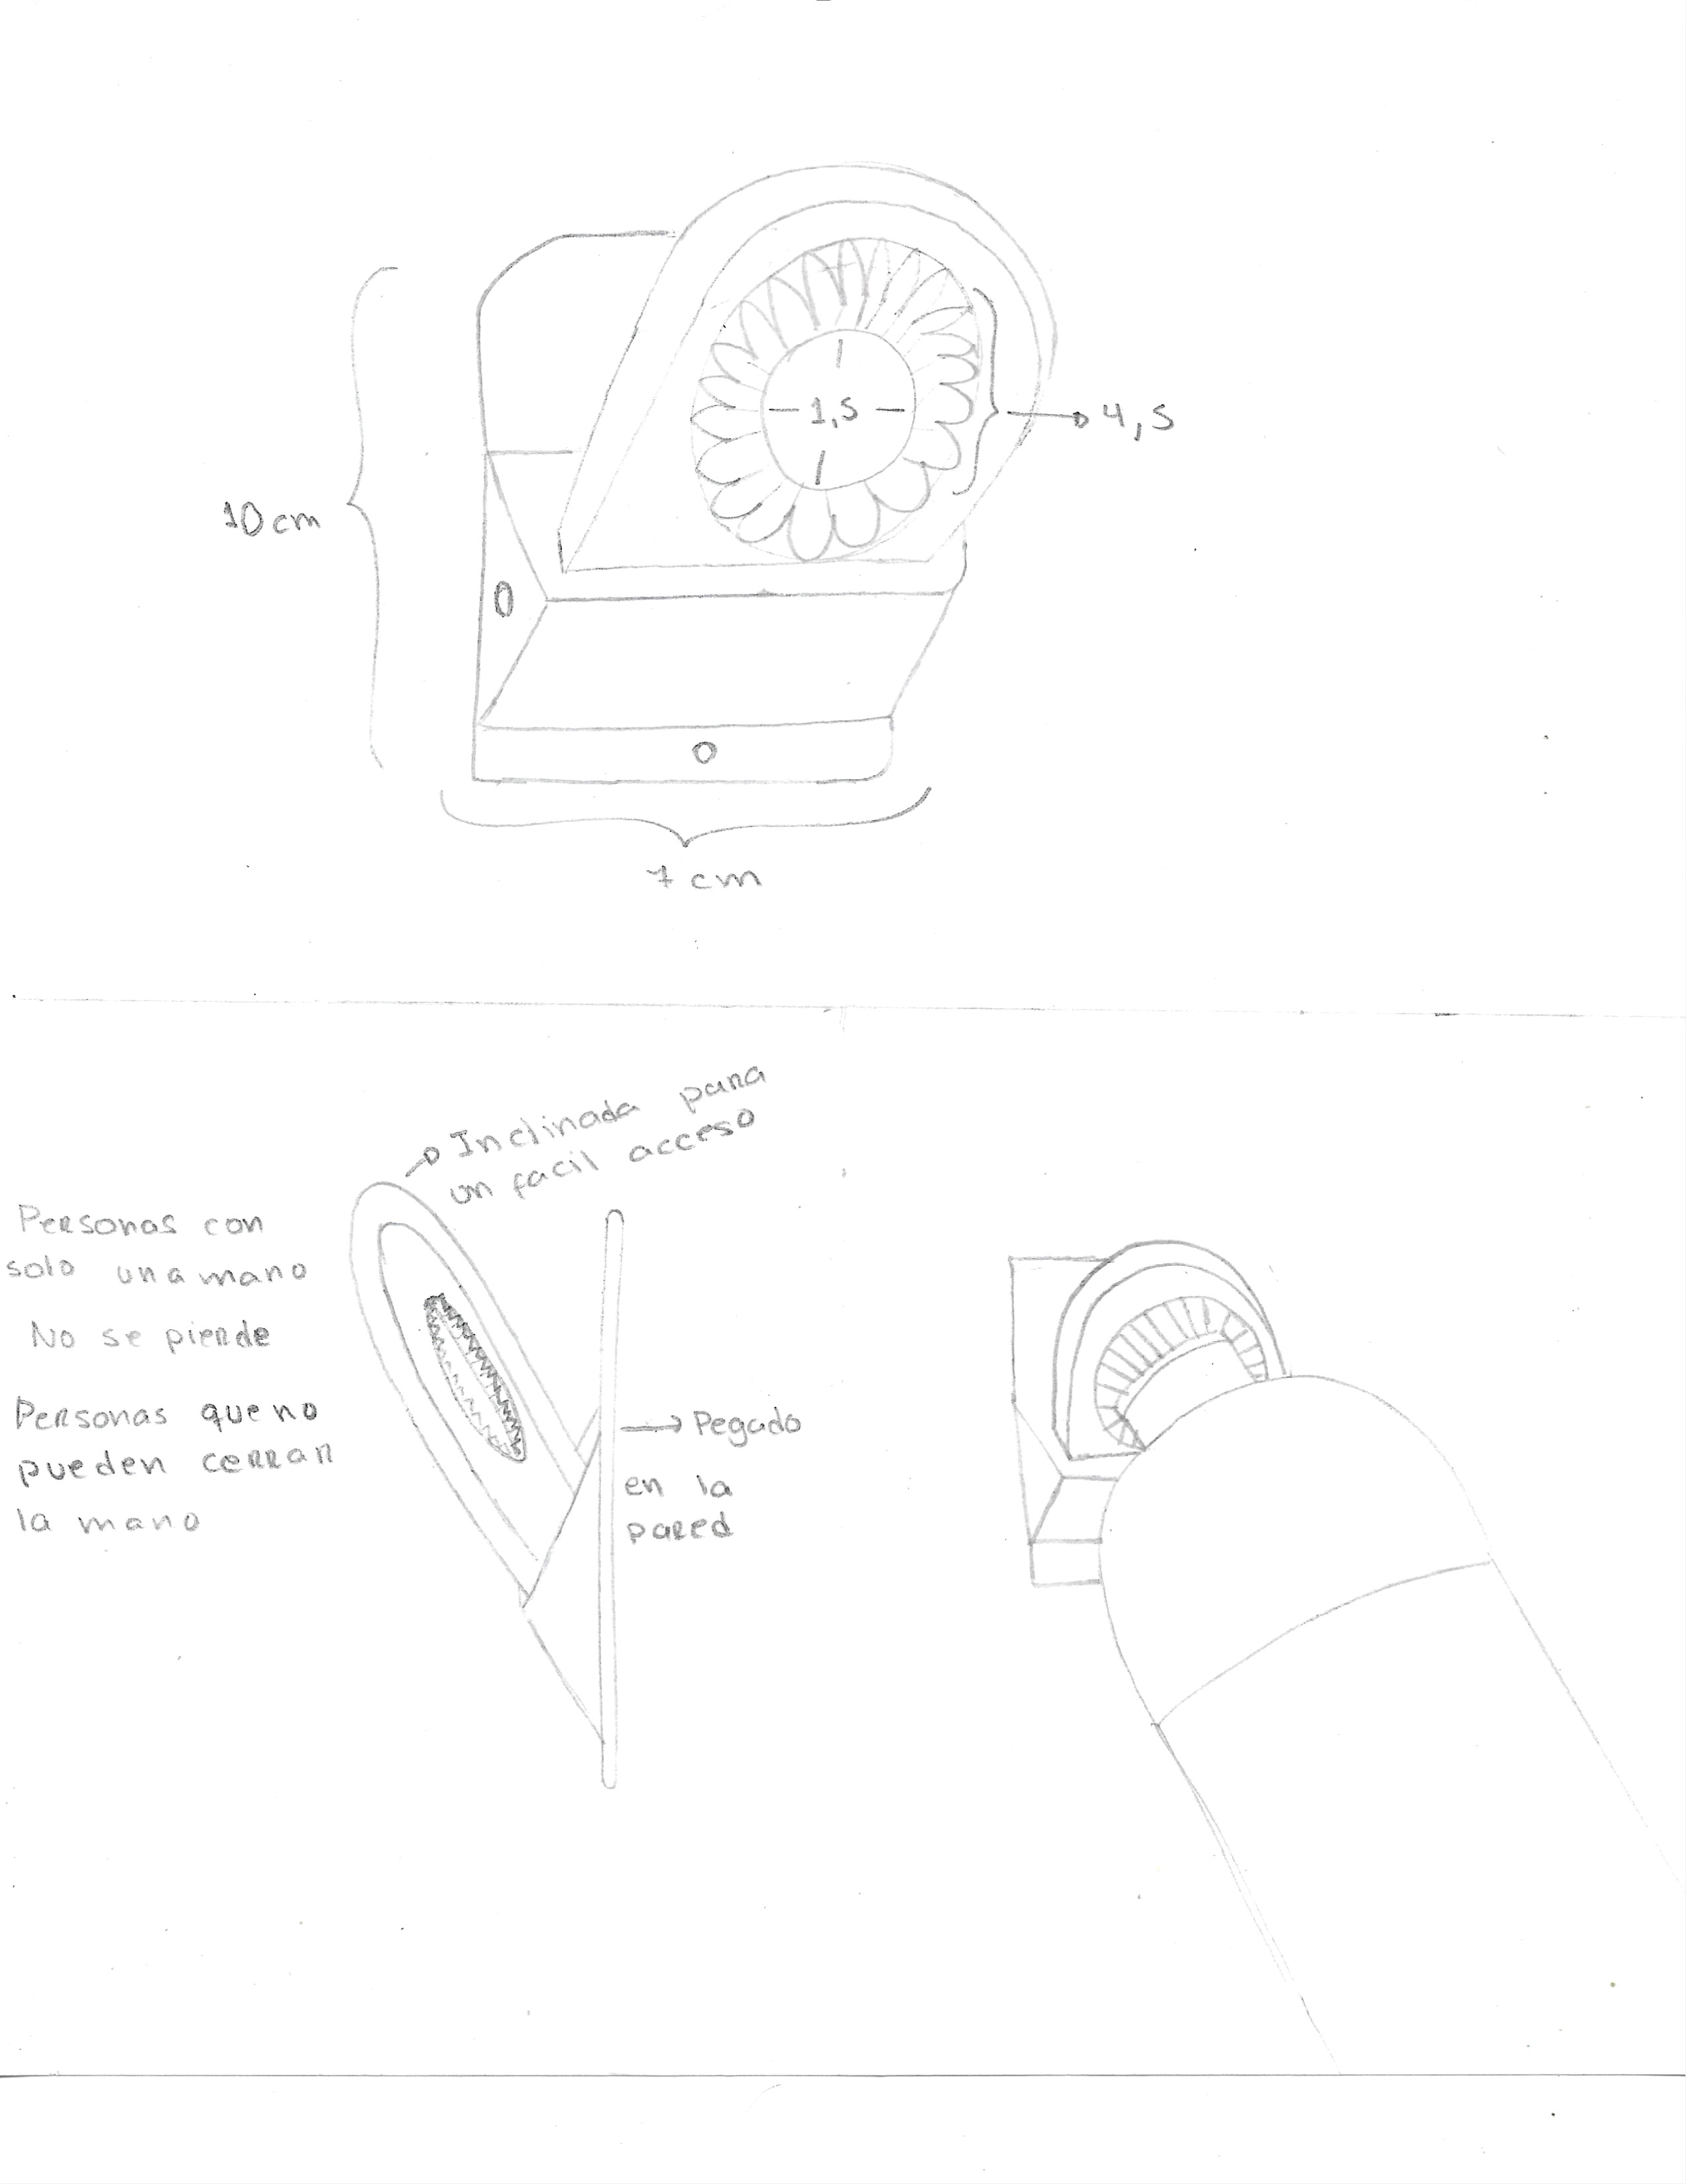 10 cm
1,5
4,5
7 cm
Inclinada para
un facil acceso
Personas con
solo una mano
No se pierde
Personas que no
pueden cerrar
la mano
Pegado
en la
pared